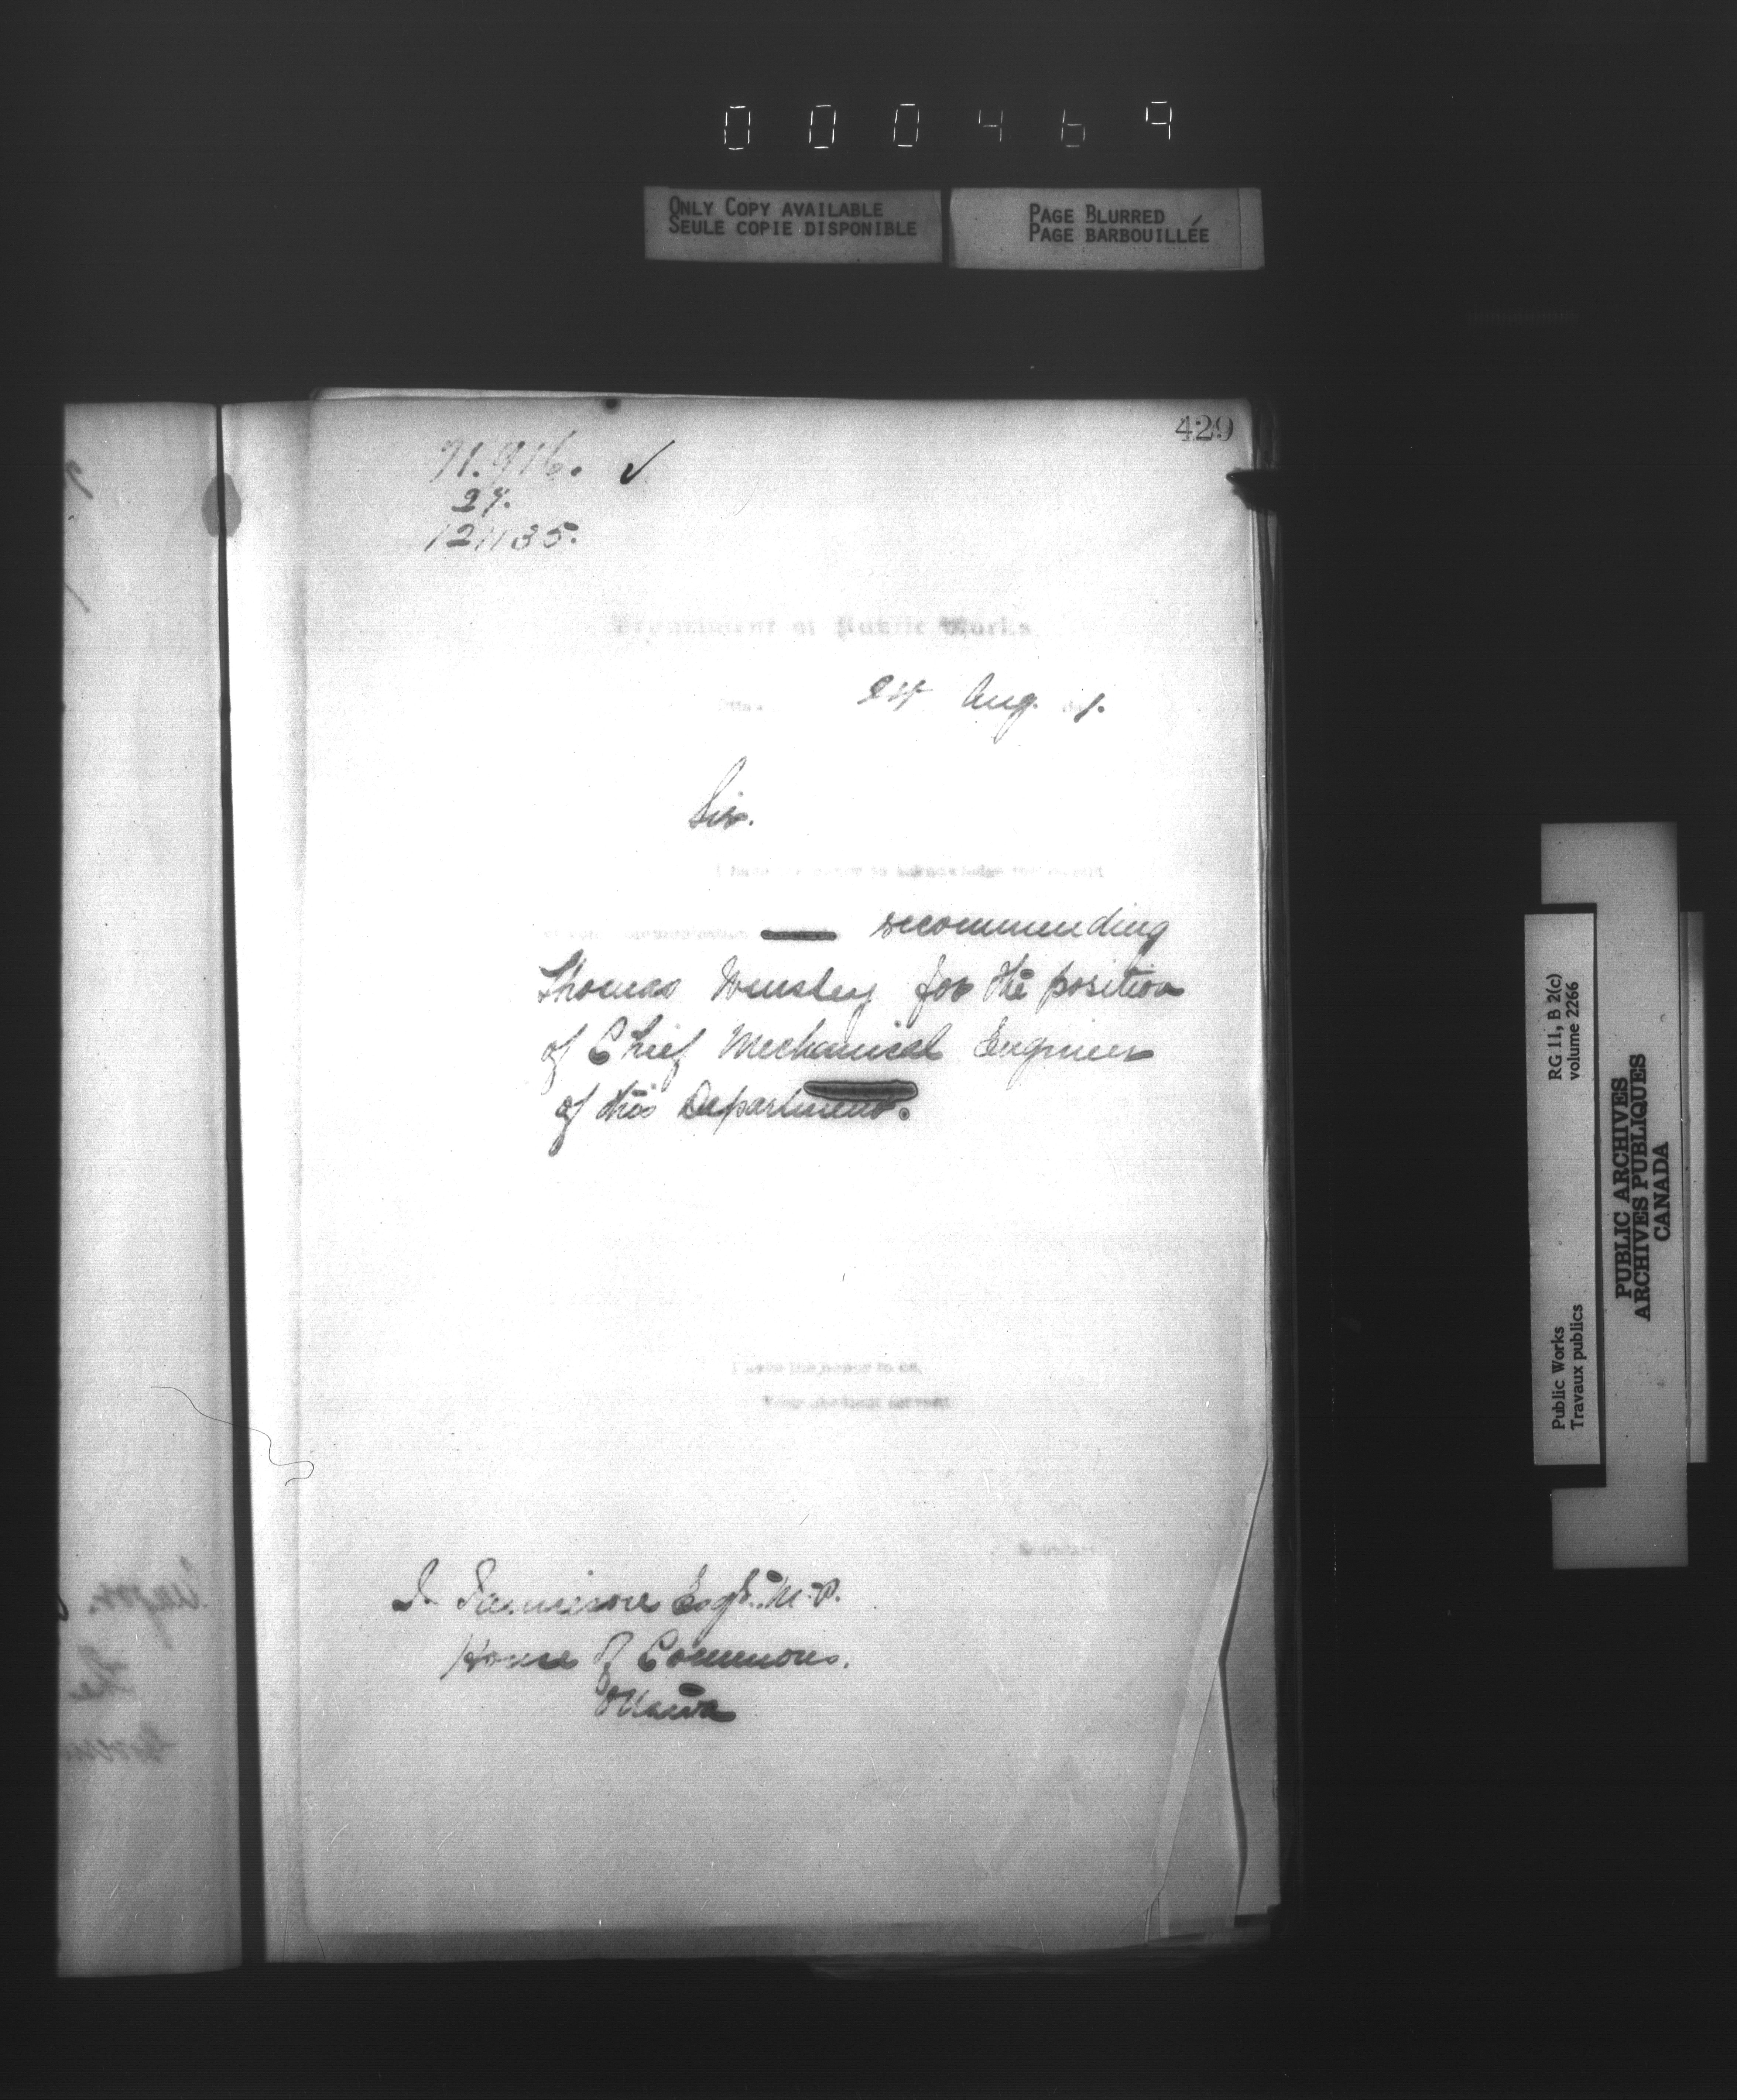 000469
ONLY COPY AVAILABLE
SEULE COPIE DISPONIBLE
PAGE BLURRED
PAGE BARBOUILLÉE
429
71.916. ✓
27.
121135.
Department of Public Works
24 Aug. 1.
Sir.
I have the honor to acknowledge the receipt
of your communication recommending
Thomas for the position
of Chief Mechanical Engineer
of this Department.
I have the honor to be,
Your obedient servant
Secretary
Jamieson Esqr. M.P.
House of Commons.
Ottawa
Public Works
Travaux publics
RG 11, B 2(c)
volume 2266
PUBLIC ARCHIVES
ARCHIVES PUBLIQUES
CANADA